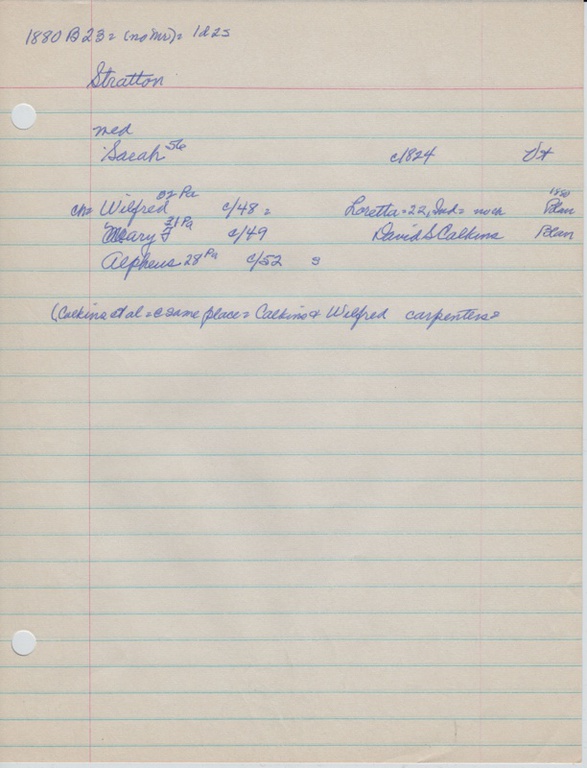 1880 B 23 = (no Mr) = 1d 2s
Stratton
med
Sarah 56 c1824 Vt
ch = Wilfred 32 Pa c/48 = Loretta = 22, Ind = no ch 1880 Blan
Mary F 31 Pa c/49 David S Calkins Blan
Alpheus 28 Pa c/52 s
(Calkins et al = @ same place = Calkins & Wilfred carpenters =